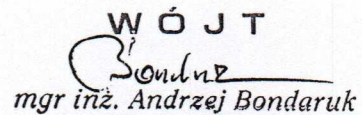 WÓJT
mgr inż. Andrzej Bondaruk